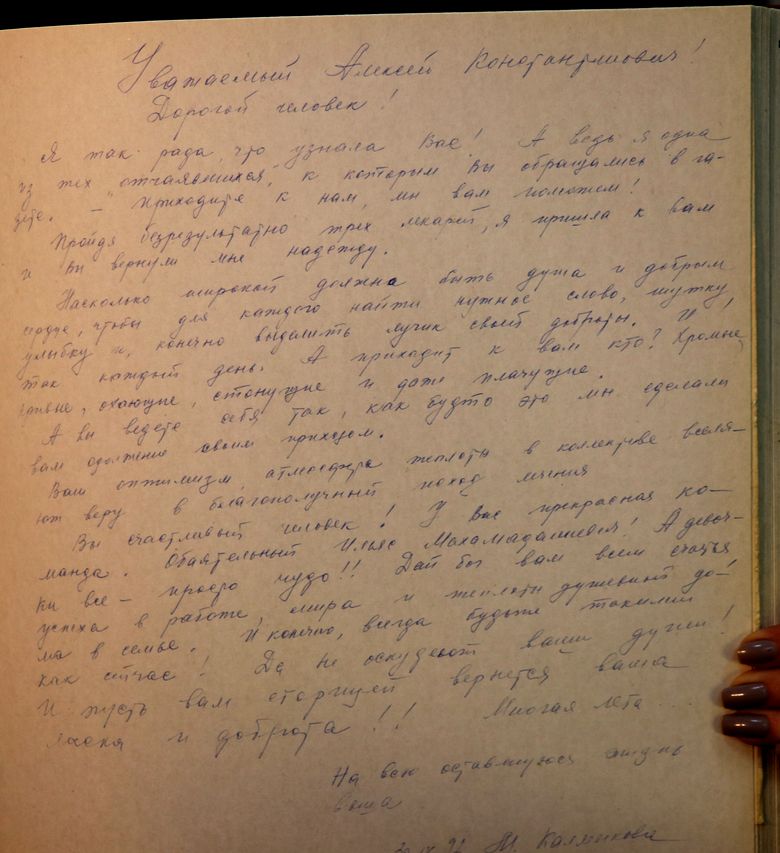 Уважаемый Алексей Константинович!
Дорогой человек!
Я так рада, что узнала Вас! А ведь я одна
из тех "отчаявшихся," к которым Вы обращались в га-
зете. – "Приходите к нам, мы вам поможем!
Пройдя безрезультатно трех лекарей, я пришла к вам
и Вы вернули мне надежду.
Насколько широкой должна быть душа и добрым
сердце, чтобы для каждого найти нужное слово, шутку
улыбку и, конечно выделить лучик своей доброты. И
так каждый день. А приходит к вам кто? Хромые,
кривые, охающие, стонущие и даже плачущие.
А вы ведете себя так, как будто это мы сделали
вам одолжение своим приходом.
Ваш оптимизм, атмосфера теплоты в коллективе вселя-
ют веру в благополучный исход лечения
Вы счастливый человек! У Вас прекрасная ко-
манда. Обаятельный Ильяс Махамадалиевич! А девоч-
ки все – просто чудо!! Дай бог вам всем счастья
успеха в работе мира и теплоты душевной до-
ма в семье. И конечно, всегда будьте такими
как сейчас! Да не оскудеют ваши души!
И пусть вам сторицей вернется ваша
ласка и доброта!! Многая лета...
На всю оставшуюся жизнь
ваша
М. Калмыкова